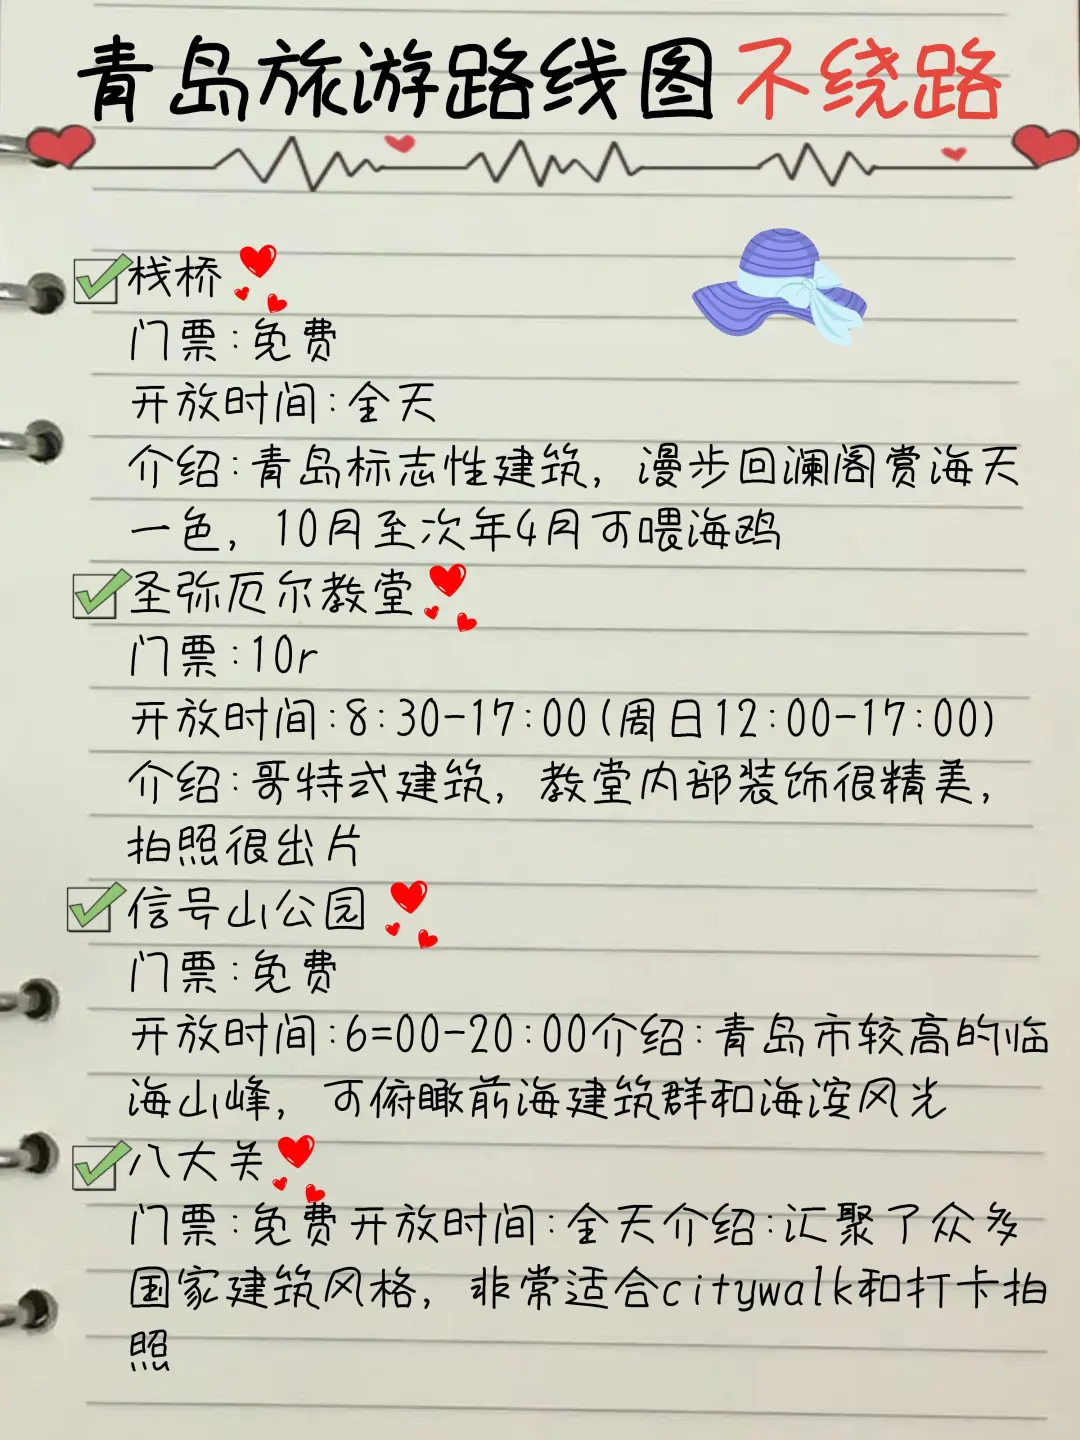 青岛旅游路线图不绕路
栈桥
门票:免费
开放时间:全天
介绍:青岛标志性建筑，漫步回澜阁赏海天
一色，10月至次年4月可喂海鸥
圣弥厄尔教堂
门票:10r
开放时间:8:30-17:00(周日12:00-17:00)
介绍:哥特式建筑，教堂内部装饰很精美，
拍照很出片
信号山公园
门票:免费
开放时间:6=00-20:00介绍:青岛市较高的临
海山峰，可俯瞰前海建筑群和海滨风光
八大关
门票:免费开放时间:全天介绍:汇聚了众多
国家建筑风格，非常适合citywalk和打卡拍
照